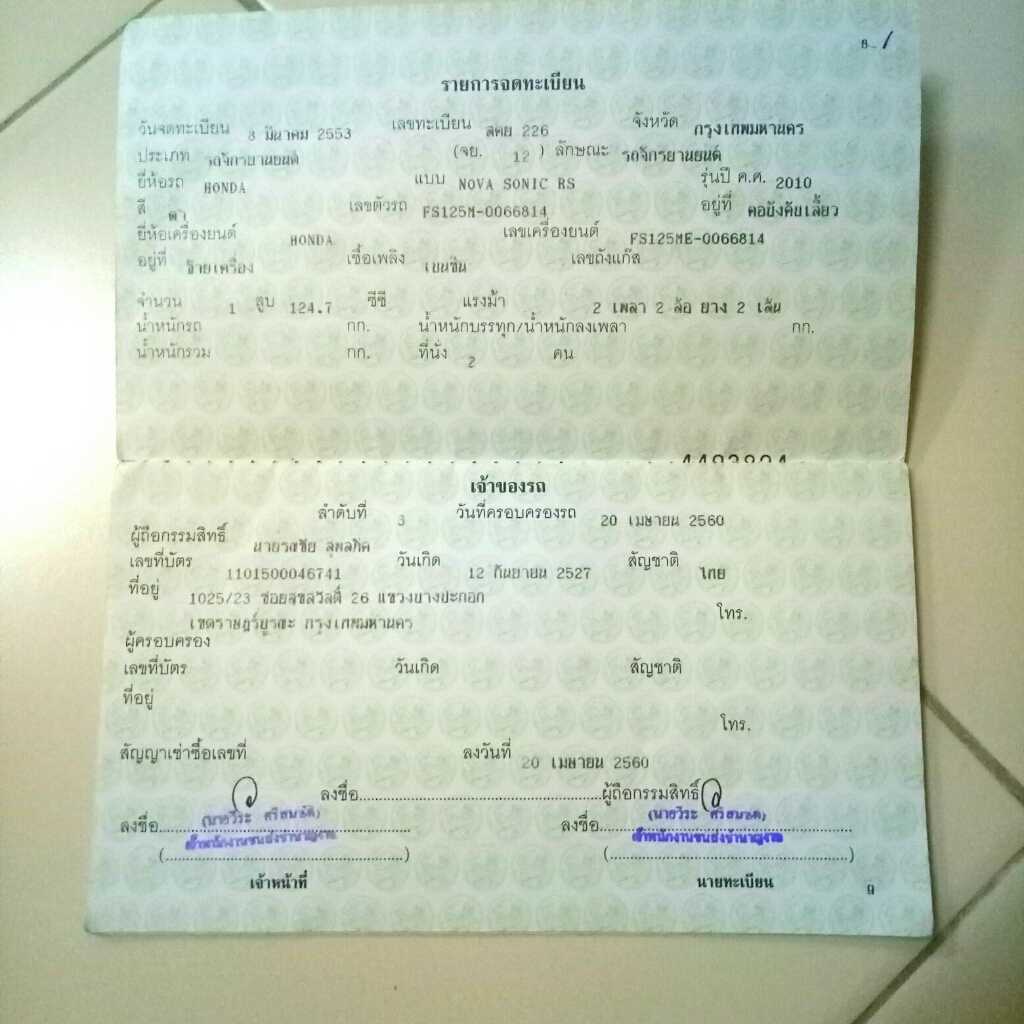 8-1
รายการจดทะเบียน
วันจดทะเบียน 8 มีนาคม 2553 เลขทะเบียน 226 จังหวัด กรุงเทพมหานคร
ประเภท รถจักรยานยนต์ (จย. 12 ) ลักษณะ รถจักรยานยนต์
ยี่ห้อรถ HONDA แบบ NOVA SONIC RS รุ่นปี ค.ศ. 2010
สี ดำ เลขตัวรถ FS125M-0066814 อยู่ที่ คอบังคับเลี้ยว
ยี่ห้อเครื่องยนต์ HONDA เลขเครื่องยนต์ FS125ME-0066814
อยู่ที่ ซ้ายเครื่อง เชื้อเพลิง เบนซิน เลขถังแก๊ส
จำนวน 1 สูบ 124.7 ซีซี แรงม้า 2 เพลา 2 ล้อ ยาง 2 เส้น
น้ำหนักรถ กก. น้ำหนักบรรทุก/น้ำหนักลงเพลา กก.
น้ำหนักรวม กก. ที่นั่ง 2 คน
เจ้าของรถ
ลำดับที่ 3 วันที่ครอบครองรถ 20 เมษายน 2560
ผู้ถือกรรมสิทธิ์
เลขที่บัตร 1101500046741 วันเกิด 12 กันยายน 2527 สัญชาติ ไทย
ที่อยู่ 1025/23 ซอยสุขสวัสดิ์ 26 แขวงบางปะกอก
เขตราษฎร์บูรณะ กรุงเทพมหานคร โทร.
ผู้ครอบครอง
เลขที่บัตร วันเกิด สัญชาติ
ที่อยู่
โทร.
สัญญาเช่าซื้อเลขที่ ลงวันที่ 20 เมษายน 2560
ลงชื่อ ผู้ถือกรรมสิทธิ์
ลงชื่อ (นายวีระ ลงชื่อ (นายวีระ
เจ้าพนักงานขนส่งชำนาญงาน เจ้าพนักงานขนส่งชำนาญงาน
เจ้าหน้าที่ นายทะเบียน
9